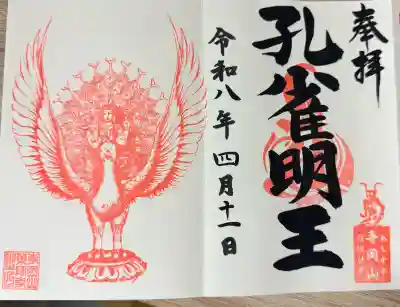 奉拝
孔雀明王
令和八年四月十一日